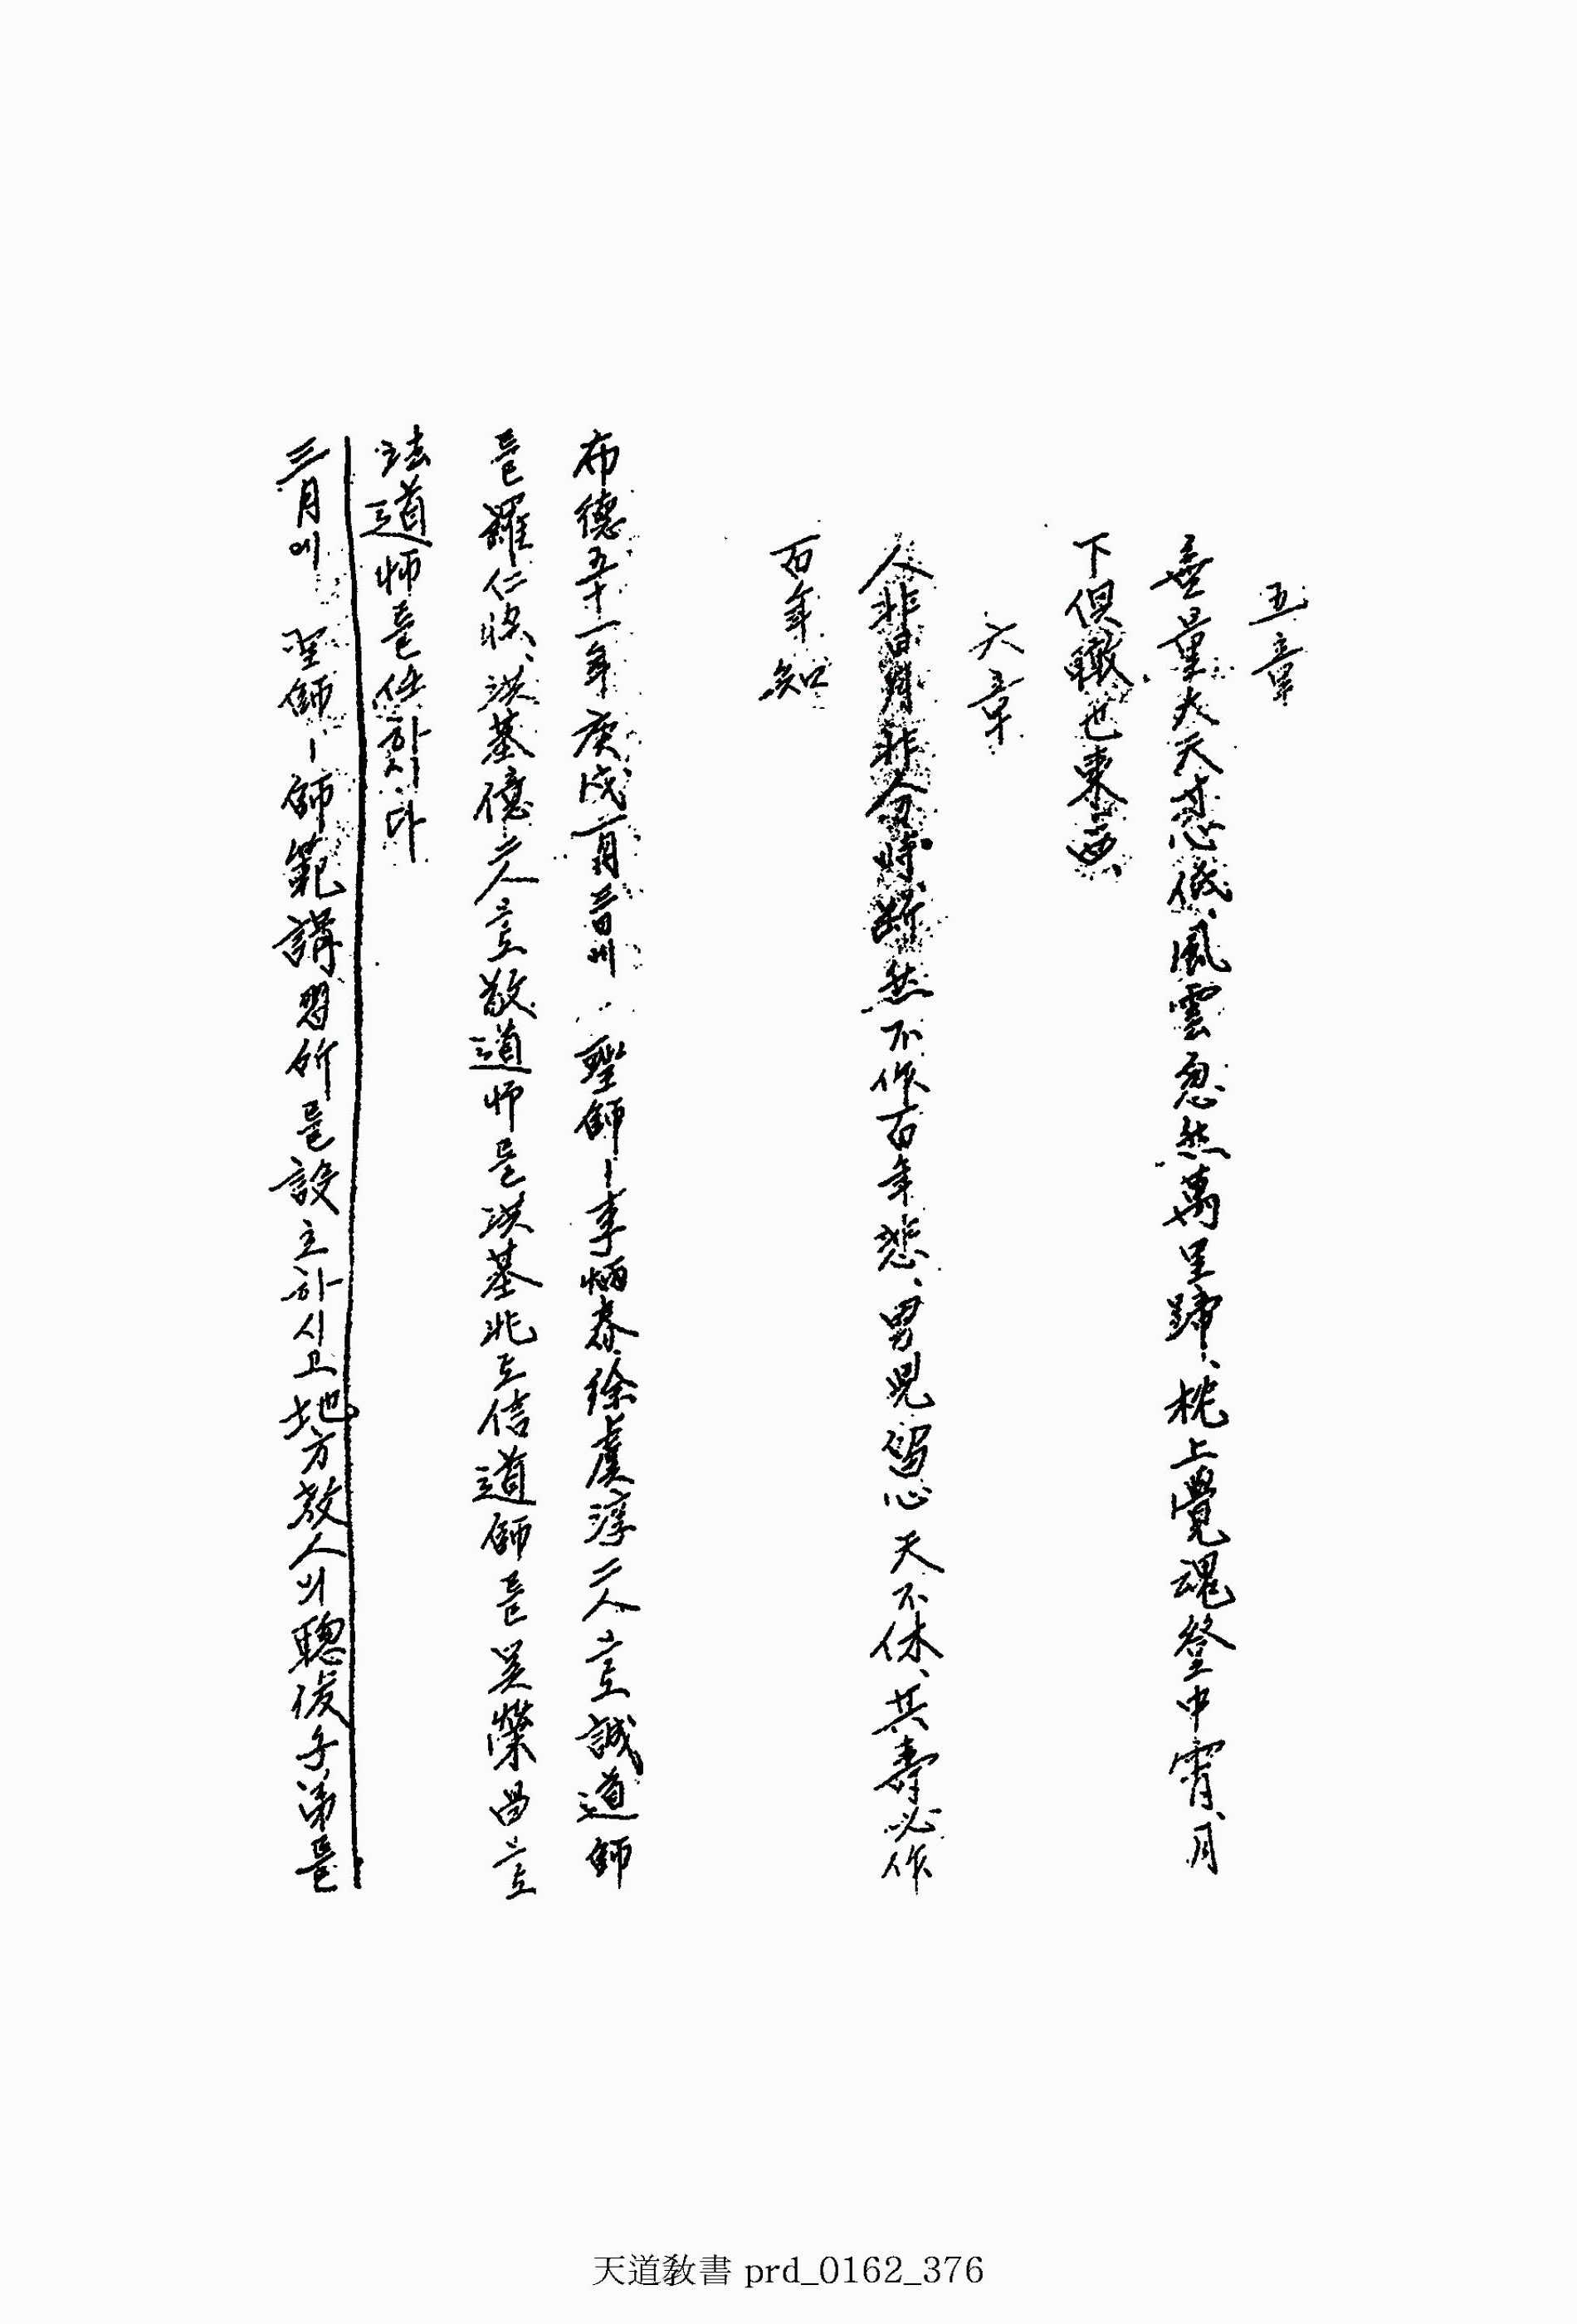 五章
無量大天寸恋低、風雲忽然萬里蹄、枕上覺魂登中宵、月
下俱轍世東西、
六章
人非日月非今時、斷然不作百年悲、男兒留心天不休、共壽必作
百年知
布德五十一年庚戌一月三日에 聖師ㅣ李炳春徐虞淳二人으로誠道師
를羅仁協、洪基億二人으로敬道師를洪基兆로信道師를吳榮昌으로
法道師를任하시다
三月에 聖師ㅣ師範講習所를設立하시고地方敎人의聰俊子弟를
天道敎書 prd_0162_376